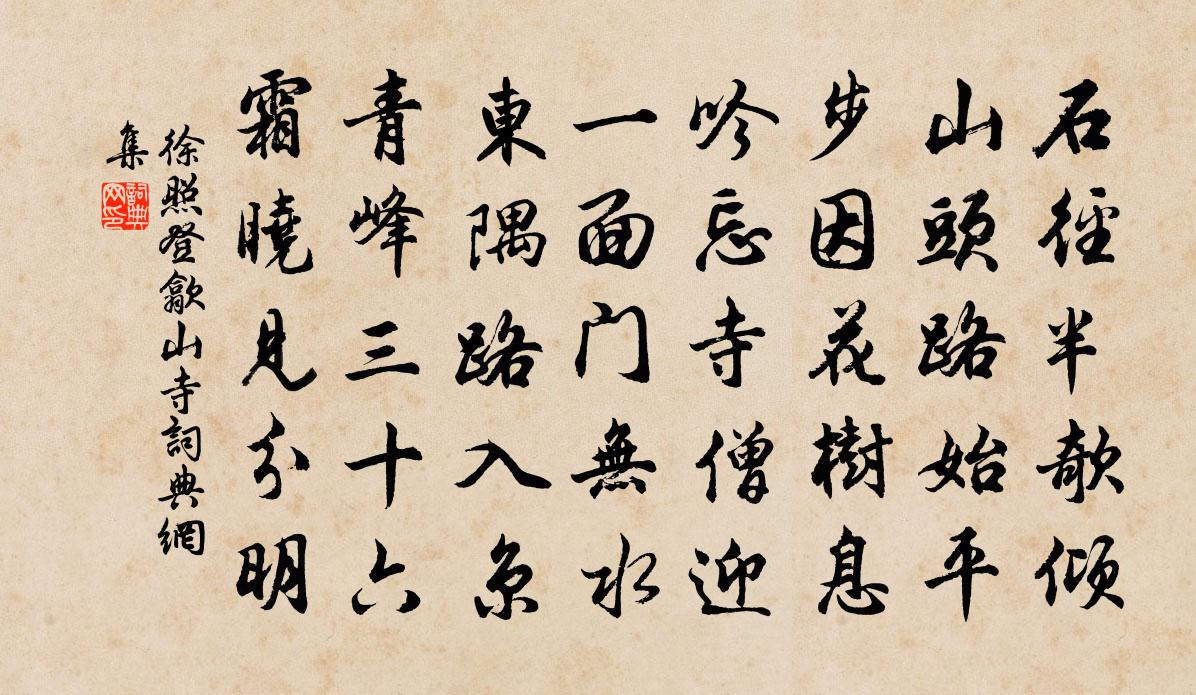 石徑半欹傾
山頭路始平
步因花樹息
吟忘寺僧迎
一面门無水
東隅路入京
青峰三十六
霜曉見分明
徐照登歙山寺詞典網
集
詞典網印